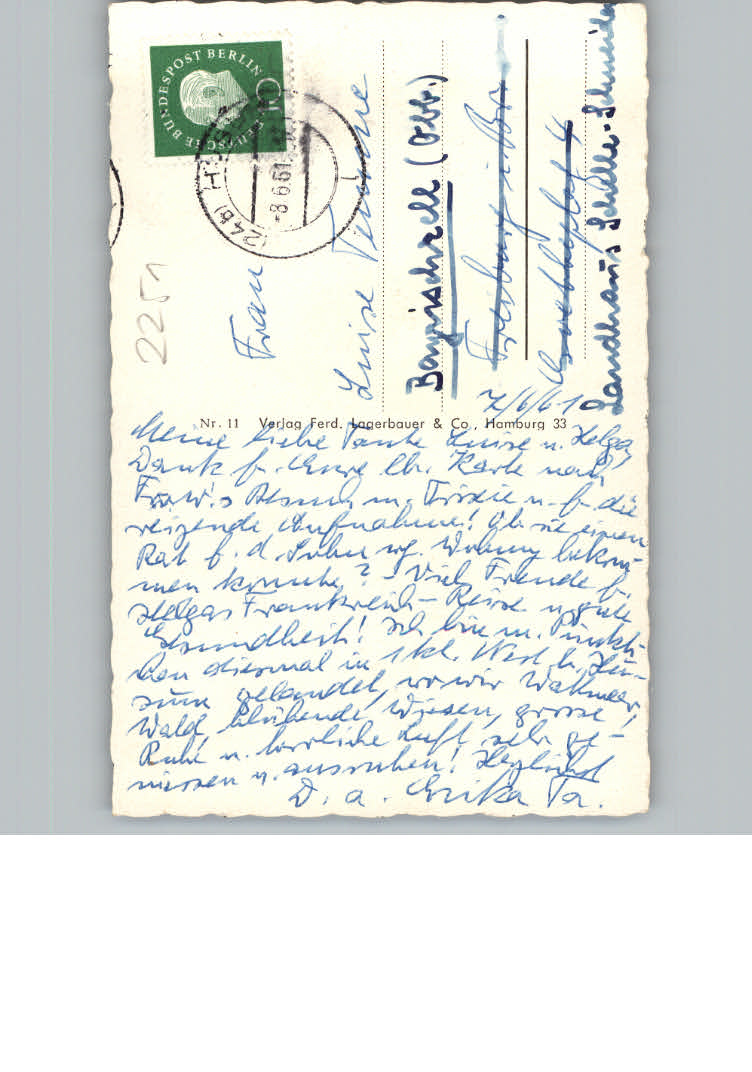 DEUTSCHE BUNDESPOST BERLIN
10
(24b) HUSUM
-8.6.61.
2251
Frau
Luise
Bayrischzell (Obb.)
Freiburg i. Br.
Goetheplatz 4
Landhaus Schüller-Schneider
7/6/61
Nr. 11 Verlag Ferd. Lagerbauer & Co., Hamburg 33
Meine liebe Tante Luise u. Helga,
Dank f. Eure lb. Karte nach
Frau W.s Besuch m. u. f. die
reizende Aufnahme! Ob sie einen
Rat f. d. Sohn wg. Wohnung bekom-
men konnte? - Viel Freude f.
Helgas Frankreich-Reise u. gute
Gesundheit! Ich bin m.
diesmal in 1 kl. Nest b. Hu-
sum gelandet, wo wir Wattmeer,
Wald, blühende Wiesen, grosse
Ruhe u. herrliche Luft sehr ge-
niessen u. ausruhen! Herzlichst
D. a. Erika Ta.